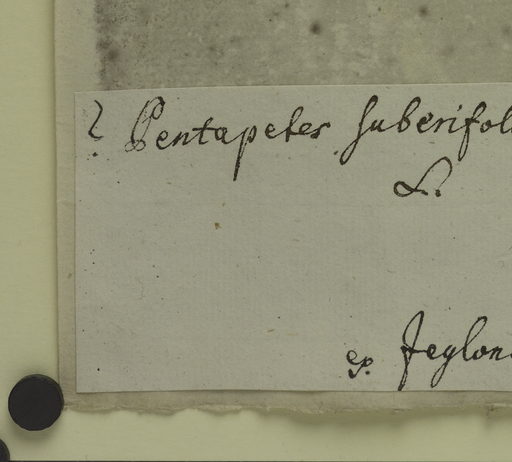 ? Pentapetes suberifol
L.
ex. Zeylon